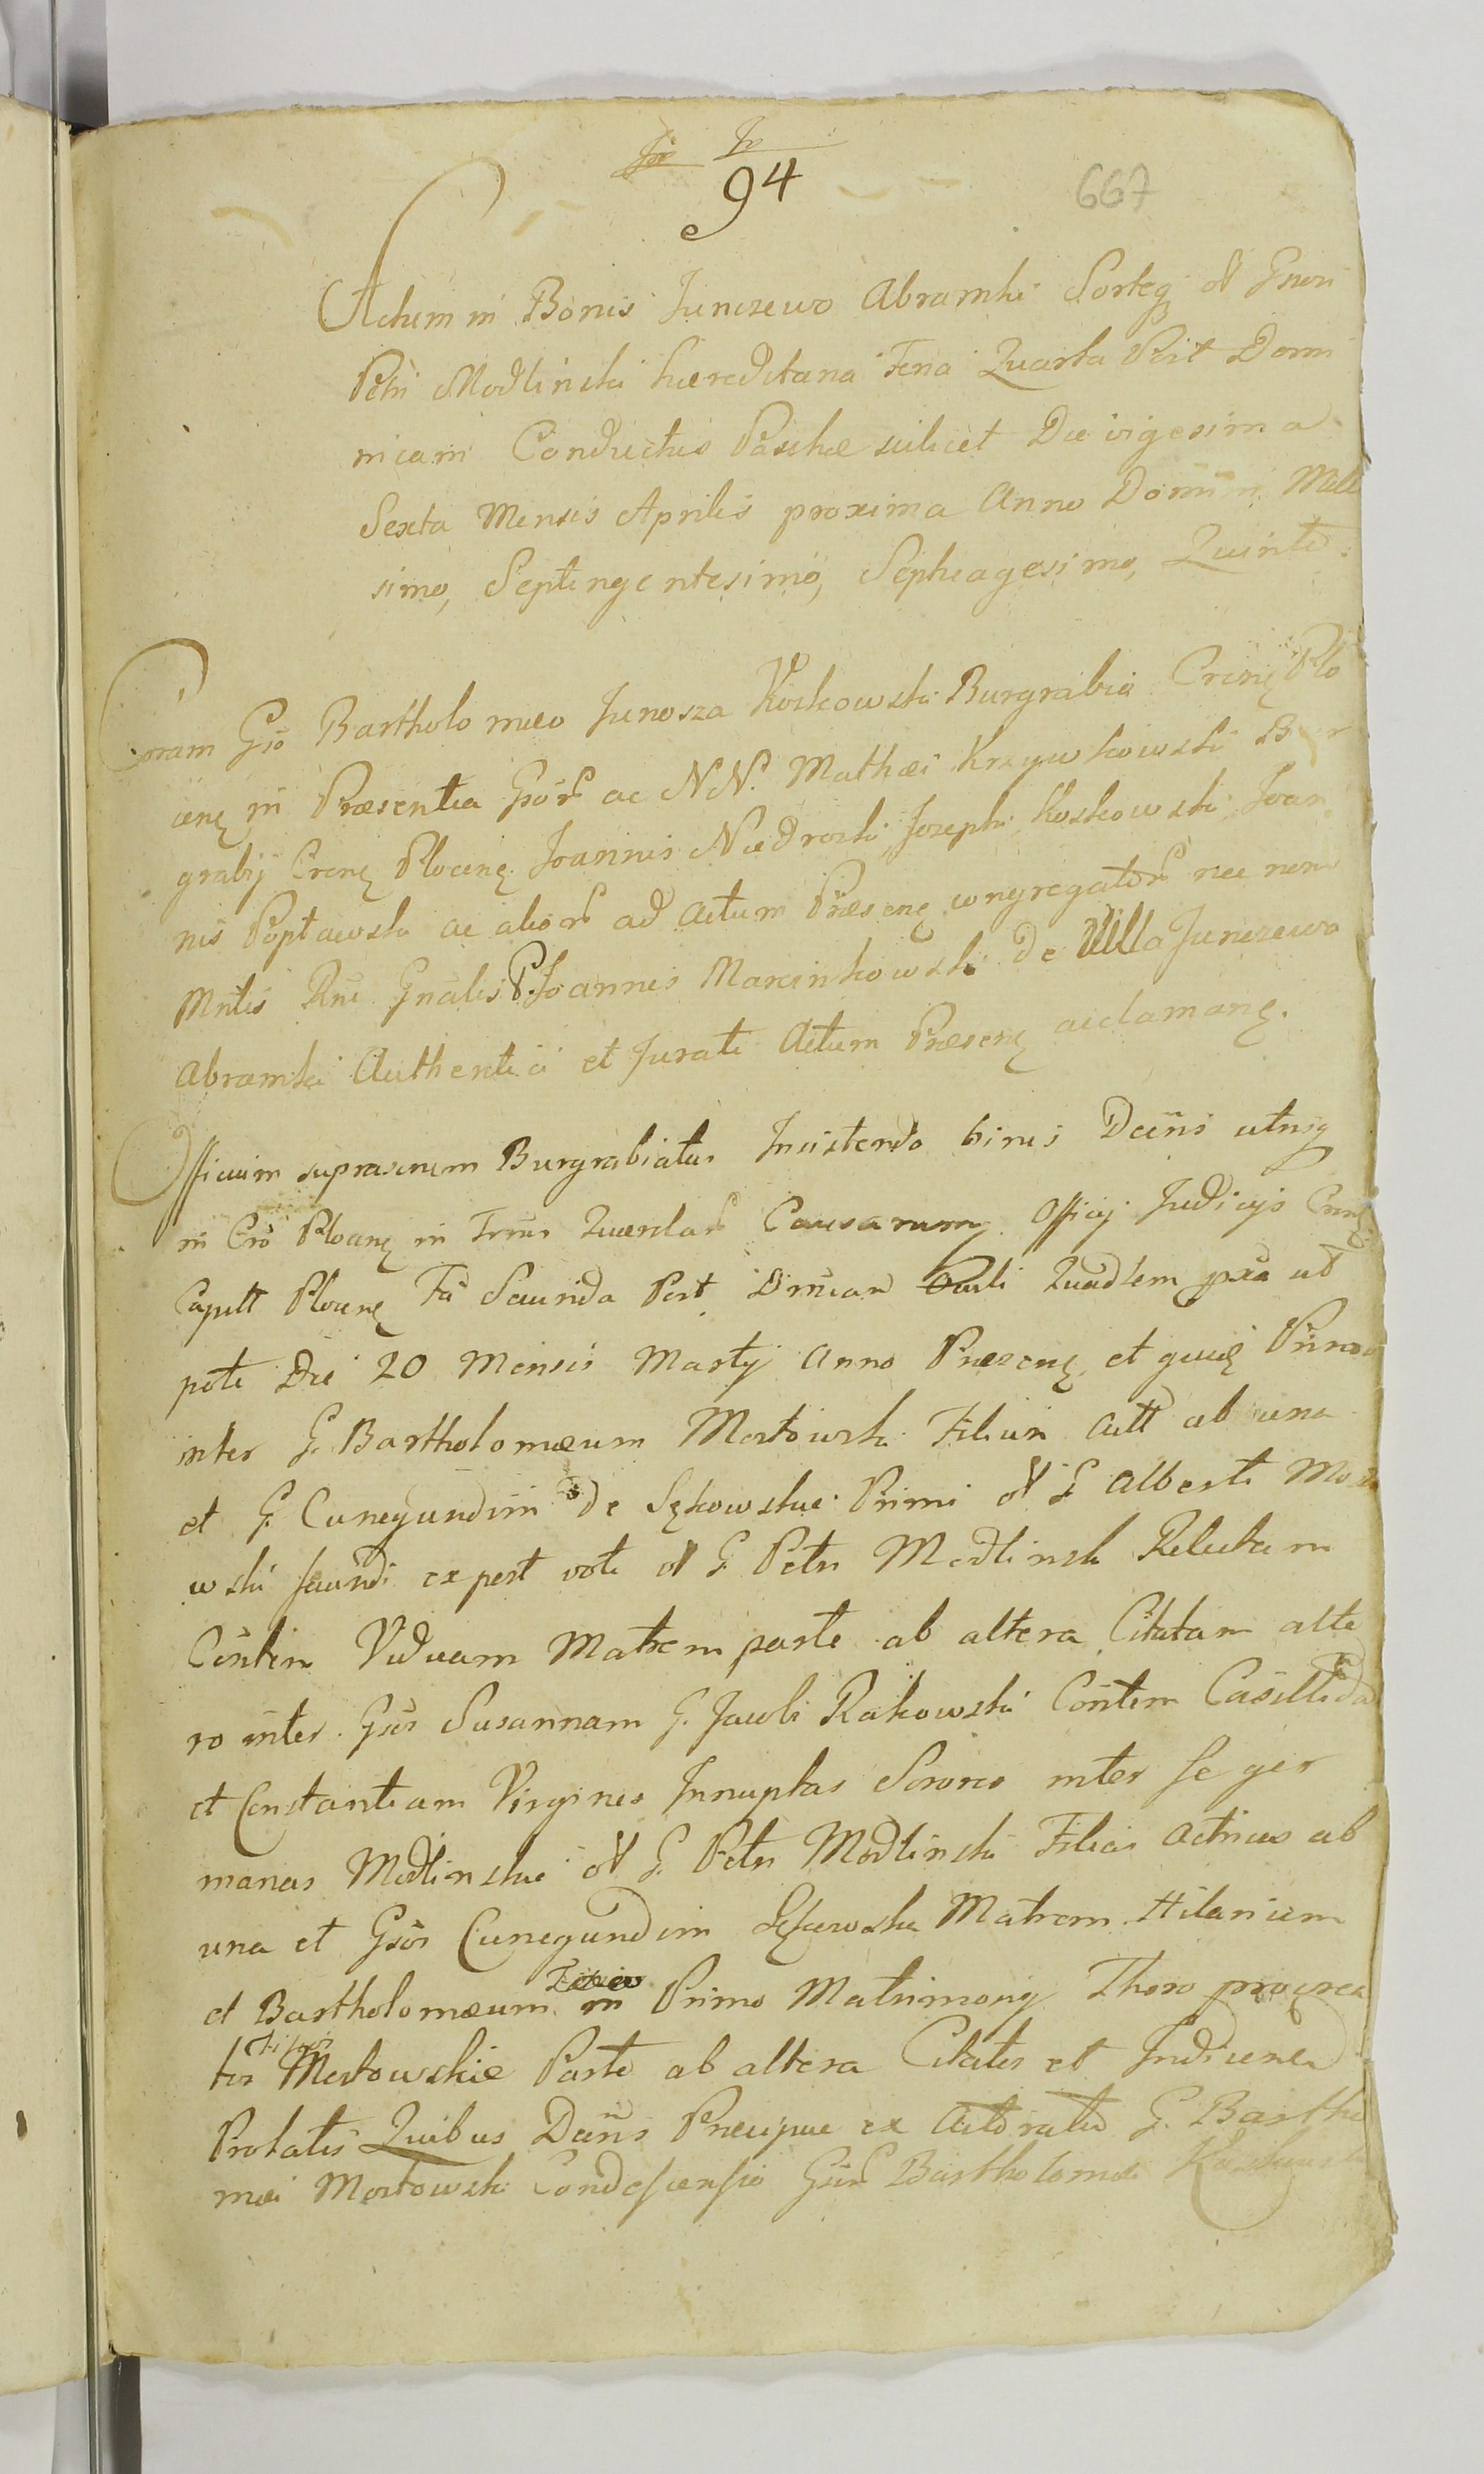 94
667
Actum in Bonis Junczewo Abramki Sorteq olĩ Gnosi
Petri Modlinski haereditaria Feria Quarta Post Domi
nicam Conductus Paschae scilicet Die vigesima
Sexta Mensis Aprilis proxima Anno Domini Mille
simo, Septingentesimo, Septuagesimo, Quinto.
Coram Gso Bartholomaeo Junosza Koskowski Burgrabia Crensę Plo
censę in Praesentia Gsor ac NN. Mathaei Krzywkowski Bur
grabij Crensę Plocensę Joannis Niedroski Josephi Koskowski Joan
nis Popławski ac alior ad Actum Praesenę congregator nec non
Mntis Rni Gnalis P. Joannis Marcinkowski de Villa Junczewo
Abramki Authentici et Jurati Actum Praesenę acclamanę.
Officium suprascrium Burgrabiatus Insistendo binis Decüs utrisq
in Cro Plocenę in Trnis Querelar Causarumq Officij Judicijs Crensę
Capitt Plocenę Fa Secunda Post Dnicam Oculi Quadlem pxa ut
pote Die 20 Mensis Martij Anno Praesenę et quidę Primo
inter G. Bartholomaeum Mostowski Filium Act ab una
et G. Cunegundim de Sękowskie Primi olĩ G Alberti Mosto
wski secundi expost voti olĩ G. Petri Modlinski Relictam
Consten Viduam Matrem parte ab altera Citatam alte
ro inter Gsos Susannam G. Jacobi Rakowski Consten
et Constantiam Virgines Innuptas Sorores inter se ger
manas Modlinskie olĩ G. Petri Modlinski Filias Actrices ab
una et Gsos Cunegundim Sękowska Matrem Hilarium
et Bartholomaeum in Primo Matrimonij Thoro procrea
tos Filios Mostowskie Parte ab altera Citatos et Indicenda
Prolatis Quibus Decüs Praecipue ex Actoratu G. Bartho
maei Mostowski Condescensio Gsor Bartholomaei Koskowski